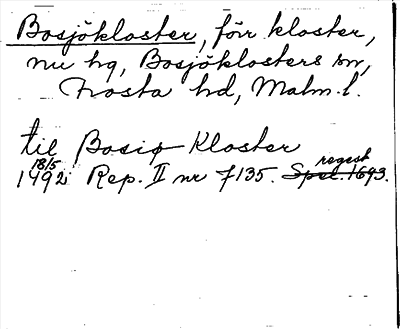 Bosjökloster, förr kloster,
nu hg, Bosjöklosters sn,
Frosta hd, Malm. l.
til Bosiø Kloster
1492 18/5 Rep. II nr 7135. Spec. 1693. regest